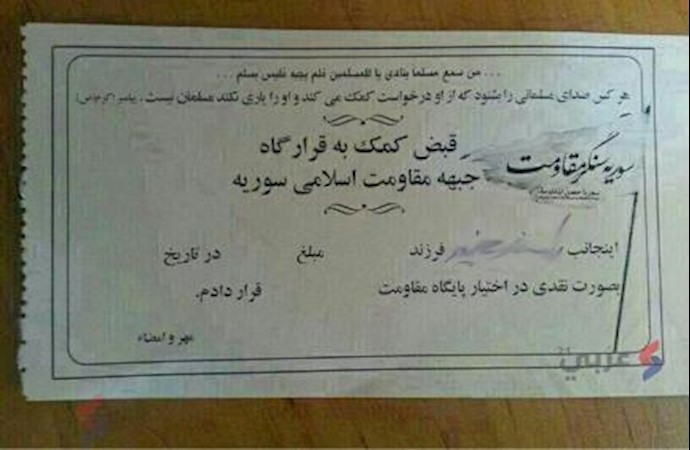 ... من سمع مسلما ینادی یا للمسلمین فلم یجبه فلیس بمسلم ...
هر کس صدای مسلمانی را بشنود که از او درخواست کمک می کند و او را یاری نکند مسلمان نیست. پیامبر اکرم(ص)
قبض کمک به قرارگاه
جبهه مقاومت اسلامی سوریه
سوریه سنگر مقاومت
اینجانب فرزند مبلغ در تاریخ
بصورت نقدی در اختیار پایگاه مقاومت قرار دادم.
مهر و امضاء
عربي 21